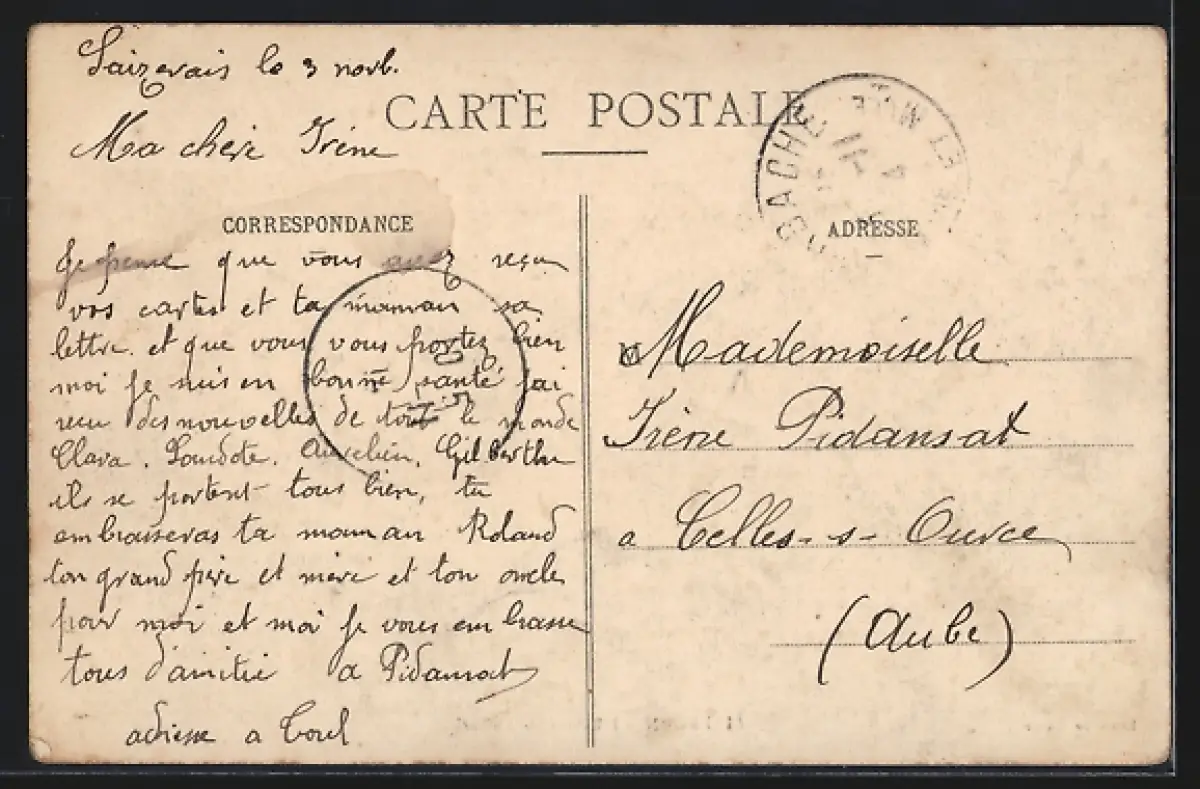 Saizerais le 3 novb.
CARTE POSTALE
Ma chere Irène
CORRESPONDANCE
Je pense que vous avez reçu
vos cartes et ta maman sa
lettre et que vous vous portez bien
moi je suis en bonne santé jai
recu des nouvelles de tout le monde
Clara. Aurelien, Gilberthe
ils se portent tous bien, tu
embrasseras ta maman Roland
ton grand père et mère et ton oncle
pour moi et moi je vous embrasse
tous d'amitié a Pidansat
adresse a Toul
BACHE
ADRESSE
Mademoiselle
Irène Pidansat
a Celles-s-Ource
(Aube)